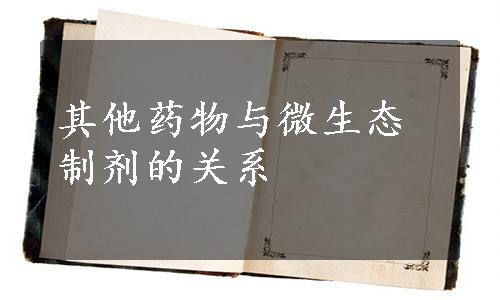 其他药物与微生态
制剂的关系